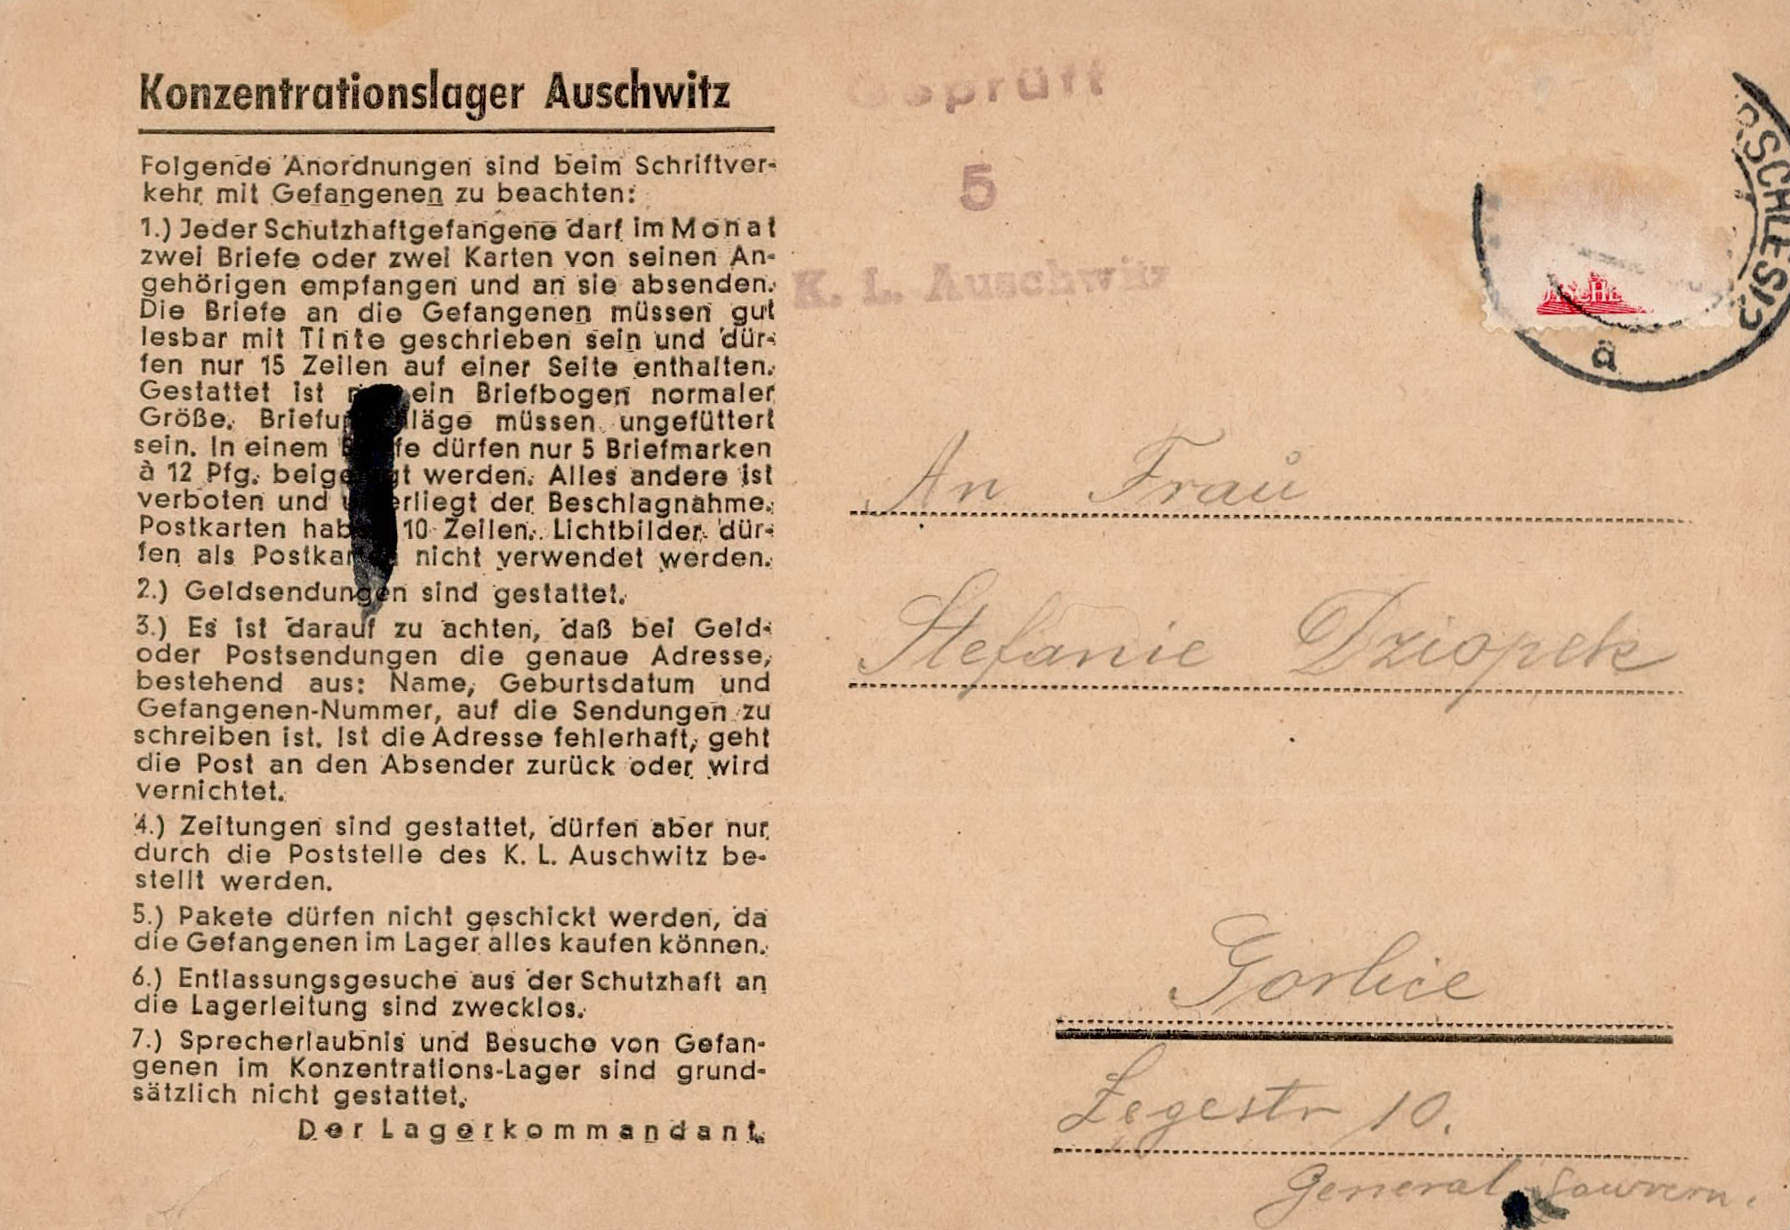 Konzentrationslager Auschwitz
Folgende Anordnungen sind beim Schriftver-
kehr mit Gefangenen zu beachten:
1.) Jeder Schutzhaftgefangene darf im Monat
zwei Briefe oder zwei Karten von seinen An-
gehörigen empfangen und an sie absenden.
Die Briefe an die Gefangenen müssen gut
lesbar mit Tinte geschrieben sein und dür-
fen nur 15 Zeilen auf einer Seite enthalten.
Gestattet ist ein Briefbogen normaler
Größe. müssen ungefüttert
sein. In einem dürfen nur 5 Briefmarken
à 12 Pfg. werden. Alles andere ist
verboten und der Beschlagnahme.
Postkarten 10 Zeilen. Lichtbilder dür-
fen als nicht verwendet werden.
2.) Geldsendungen sind gestattet.
3.) Es ist darauf zu achten, daß bei Geld-
oder Postsendungen die genaue Adresse,
bestehend aus: Name, Geburtsdatum und
Gefangenen-Nummer, auf die Sendungen zu
schreiben ist. Ist die Adresse fehlerhaft, geht
die Post an den Absender zurück oder wird
vernichtet.
4.) Zeitungen sind gestattet, dürfen aber nur
durch die Poststelle des K. L. Auschwitz be-
stellt werden.
5.) Pakete dürfen nicht geschickt werden, da
die Gefangenen im Lager alles kaufen können.
6.) Entlassungsgesuche aus der Schutzhaft an
die Lagerleitung sind zwecklos.
7.) Sprecherlaubnis und Besuche von Gefan-
genen im Konzentrations-Lager sind grund-
sätzlich nicht gestattet.
Der Lagerkommandant.
Geprüft
5
K. L. Auschwitz
a
An Frau
Stefanie Dziopek
Gorlice
Legestr 10.
General Gouvern.